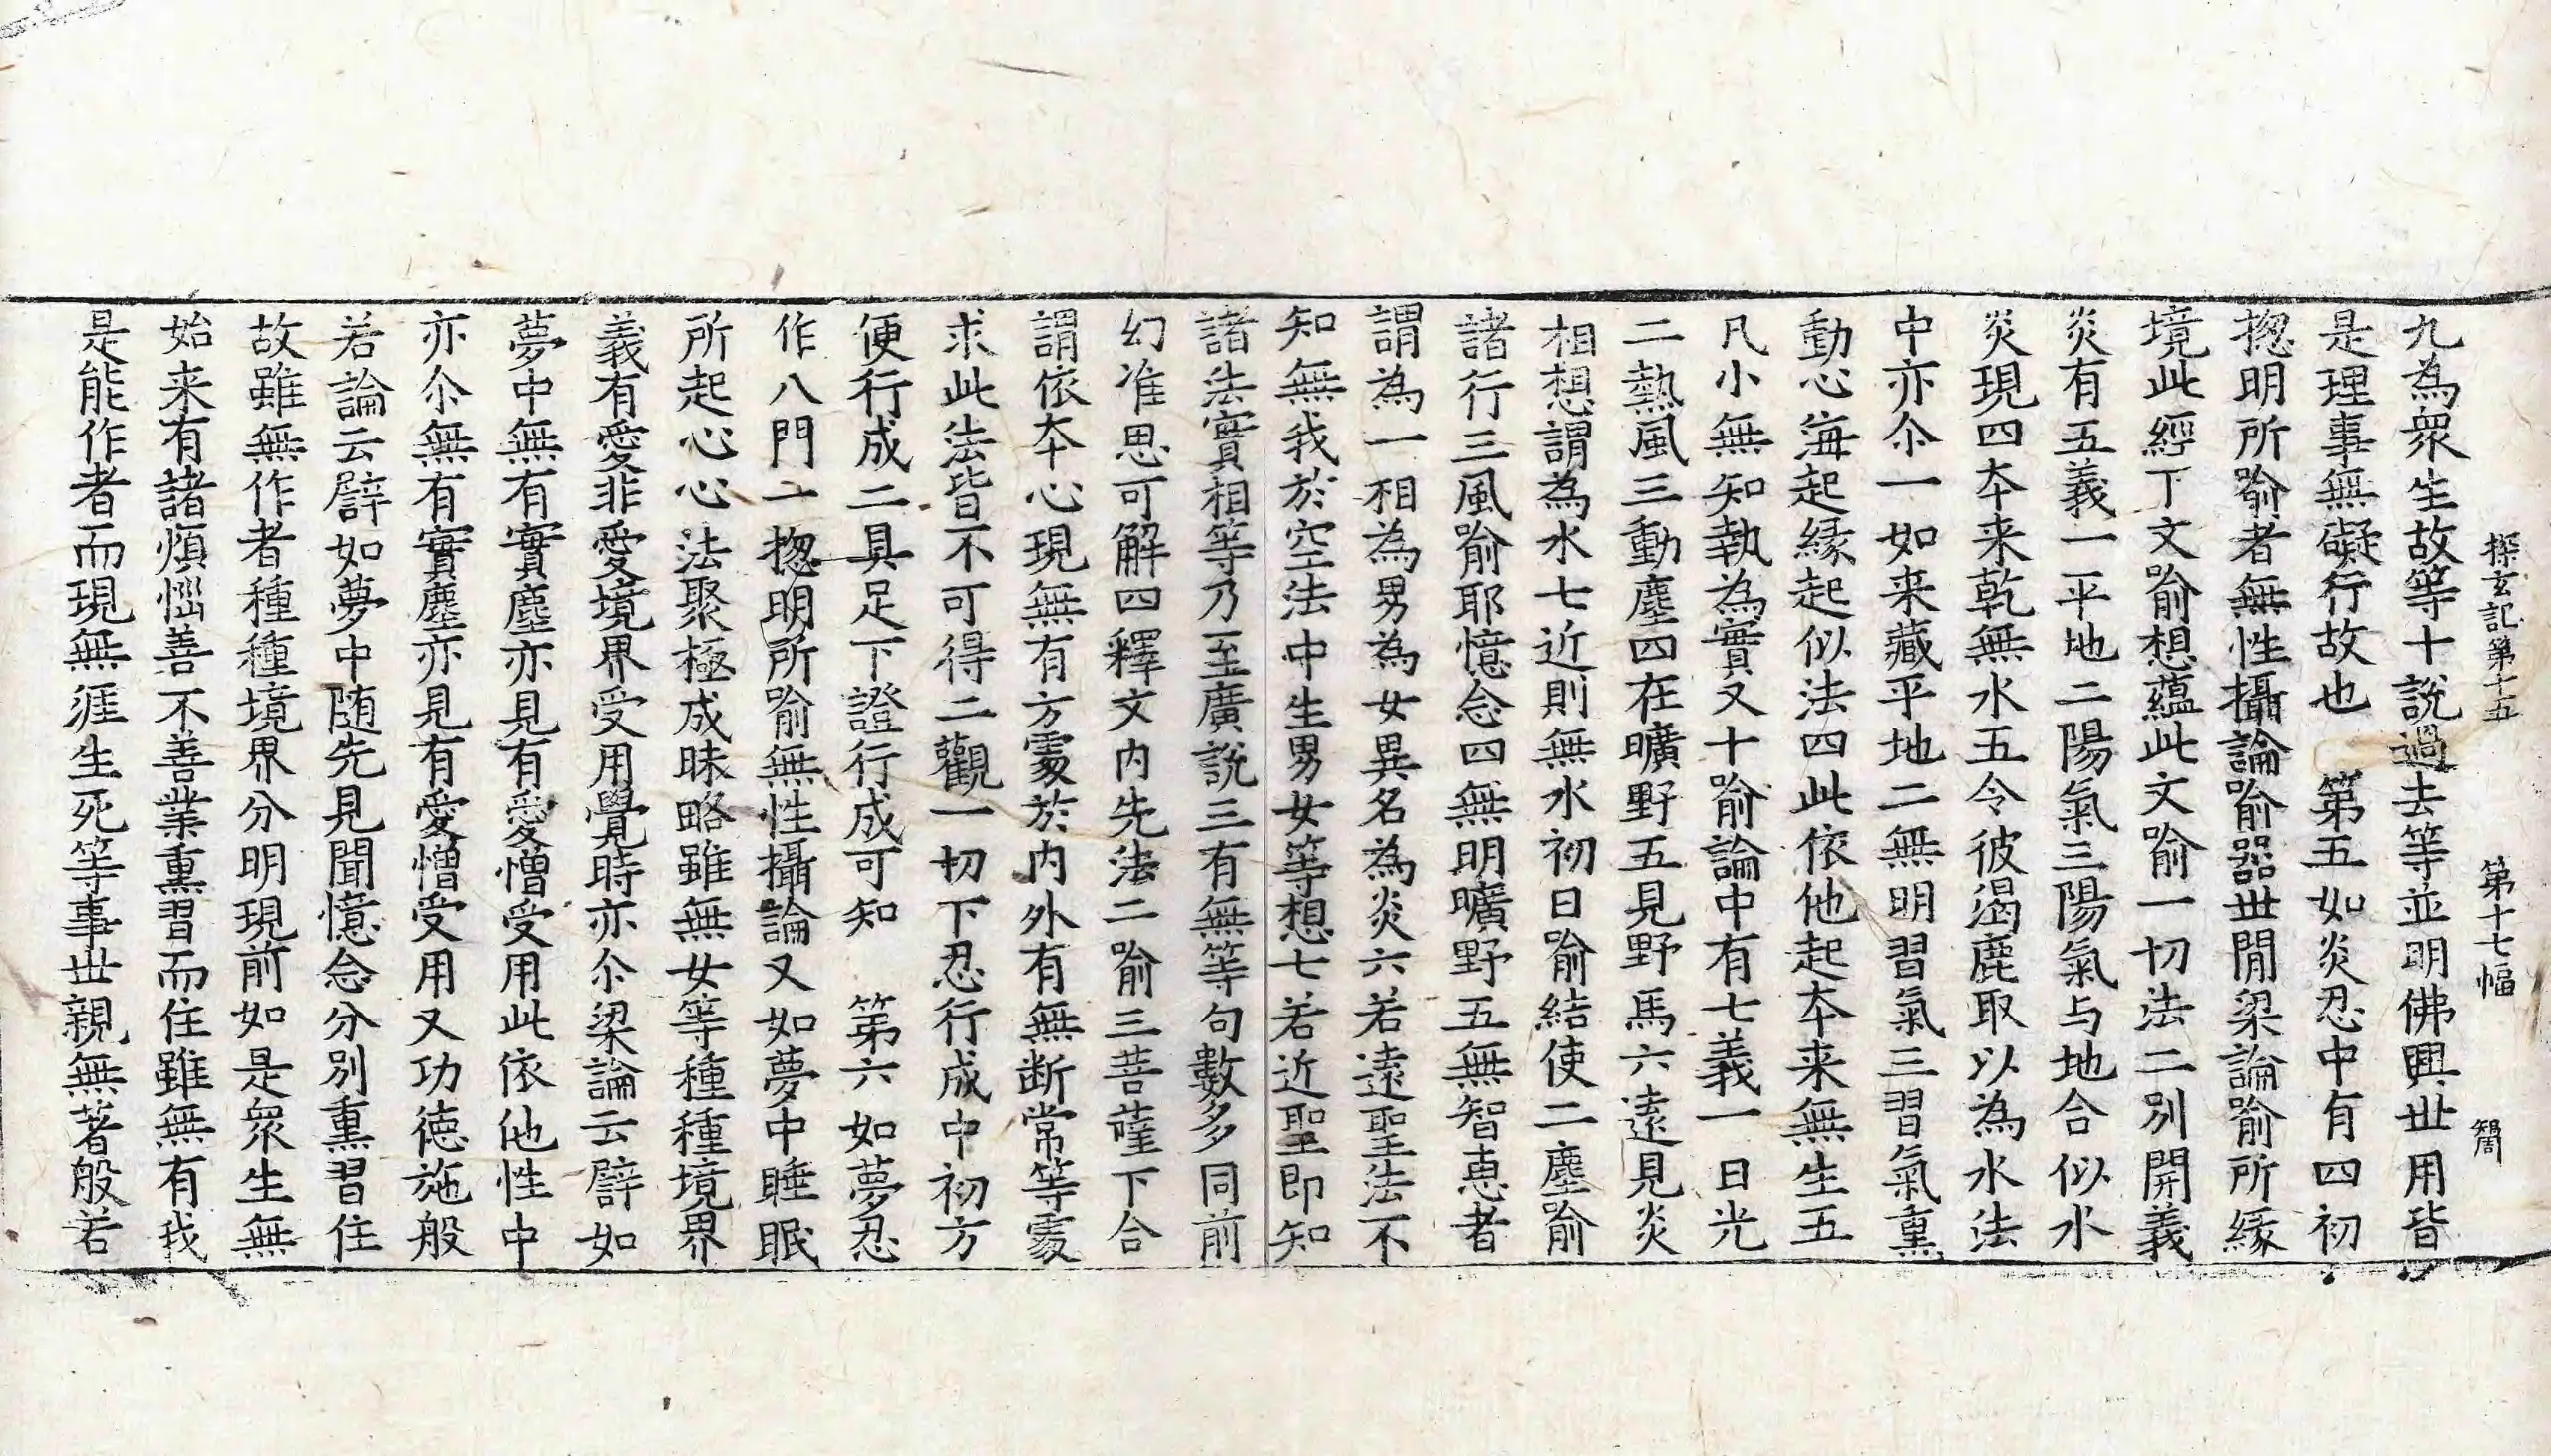 探玄記第十五　第十七幅　𥳑
九為衆生故等十說過去等並明佛興世用皆
是理事無礙行故也　第五如炎忍中有四初
揔明所喻者無性攝論喻器世間梁論喻所緣
境此經丁文喻想蘊此文喻一切法二別開義
炎有五義一平地二陽氣三陽氣与地合似水
炎現四夲来乾無水五令彼渴鹿取以為水法
中亦尒一如来藏平地二無明習氣三習氣熏
動心海起緣起似法四此依他起夲来無生五
凡小無知執為實又十喻論中有七義一日光
二熱風三動塵四在曠野五見野馬六遠見炎
相想謂為水七近則無水初日喻結使二塵喻
諸行三風喻耶憶念四無明曠野五無智恵者
謂為一相為男為女異名為炎六若遠聖法不
知無我於空法中生男女等想七若近聖即知
諸法實相等乃至廣說三有無等句數多同前
幻准思可解四釋文内先法二喻三菩薩下合
謂依夲心現無有方處於内外有無断常等處
求此法皆不可得二觀一切下忍行成中初方
便行成二具足下證行成可知　第六如夢忍
作八門一揔明所喻無性攝論又如夢中睡眠
所起心心法聚極成昧略雖無女等種種境界
義有愛非愛境界受用覺時亦尒梁論云譬如
夢中無有實塵亦見有愛憎受用此依他性中
亦尒無有實塵亦見有愛憎受用又功徳施般
若論云譬如夢中随先見聞憶念分別熏習住
故雖無作者種種境界分明現前如是衆生無
始来有諸煩惱善不善業熏習而住雖無有我
是能作者而現無涯生死等事世親無著般若